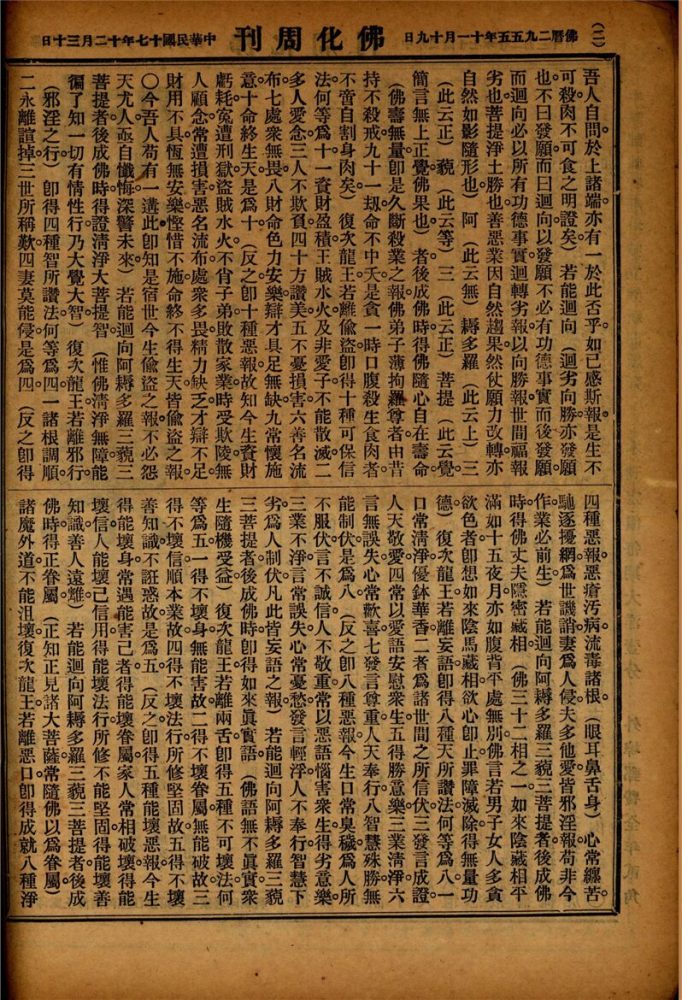 (二)
佛曆二九五五年十一月十九日
佛化周刊
中華民國十七年十二月三十日
吾人自問於上諸端亦有一於此否乎如已感斯報是生不
可殺肉不可食之明證矣）若能迴向（迴劣向勝亦發願
也不曰發願而曰迴向以發願不必有功德事實而後發願
而迴向必以所有功德事實迴轉劣報以向勝報世間福報
劣也菩提淨土勝也善惡業因自然趨果然仗願力改轉亦
自然如影隨形也）阿（此云無）耨多羅（此云上）三
（此云正）藐（此云等）三（此云正）菩提（此云覺
簡言無上正覺佛果也）者後成佛時得佛隨心自在壽命
（佛壽無量卽是久斷殺業之報佛弟子薄拘羅尊者由昔
持不殺戒九十一刼命不中夭是貪一時口腹殺生食肉者
不啻自割身肉矣）復次龍王若離偸盜卽得十種可保信
法何等爲十一資財盈積王賊水火及非愛子不能散滅二
多人愛念三人不欺負四十方讚美五不憂損害六善名流
布七處衆無畏八財命色力安樂辯才具足無缺九常懷施
意十命終生天是爲十（反之卽十種惡報故知今生資財
虧耗寃遭刑獄盜賊水火不肖子弟敗散家業時受欺陵無
人顧念常遭損害惡名流布處衆多畏精力缺乏才辯不足
財用不具恆無安樂慳惜不施命終不得生天皆偸盜之報
○今吾人苟有一遘此卽知是宿世今生偸盜之報不必怨
天尤人亟自懺悔深警未來）若能迴向阿耨多羅三藐三
菩提者後成佛時得證淸淨大菩提智（惟佛淸淨無障能
徧了知一切有情性行乃大覺大智）復次龍王若離邪行
（邪淫之行）卽得四種智所讚法何等爲四一諸根調順
二永離諠掉三世所稱歎四妻莫能侵是爲四（反之卽得
四種惡報惡瘡污病流毒諸根（眼耳鼻舌身）心常纏苦
馳逐擾網爲世譏誚妻爲人侵夫多他愛皆邪淫報苟非今
作業必前生）若能迴向阿耨多羅三藐三菩提者後成佛
時得佛丈夫隱密藏相（佛三十二相之一如來陰藏相平
滿如十五夜月亦如腹背平處無別佛言若男子女人多貪
欲色者卽想如來陰馬藏相欲心卽止罪障滅除得無量功
德）復次龍王若離妄語卽得八種天所讚法何等爲八一
口常淸淨優鉢華香二者爲諸世間之所信伏三發言成證
人天敬愛四常以愛語安慰衆生五得勝意樂三業淸淨六
言無誤失心常歡喜七發言尊重人天奉行八智慧殊勝無
能制伏是爲八（反之卽八種惡報今生口常臭穢爲人所
不服伏言不誠信人不敬重常以惡語惱害衆生得劣意樂
三業不淨言常誤失心常憂愁發言輕浮人不奉行智慧下
劣爲人制伏凡此皆妄語之報）若能迴向阿耨多羅三藐
三菩提者後成佛時卽得如來眞實語（佛語無不眞實衆
生隨機受益）復次龍王若離兩舌卽得五種不可壞法何
等爲五一得不壞身無能害故二得不壞眷屬無能破故三
得不壞信順本業故四得不壞法行所修堅固故五得不壞
善知識不誑惑故是爲五（反之卽得五種能壞惡報今生
得能壞身常遇能害己者得能壞眷屬家人常相破壞得能
壞信人能壞已信用得能壞法行所修不能堅固得能壞善
知識善人遠離）若能迴向阿耨多羅三藐三菩提者後成
佛時得正眷屬（正知正見諸大菩薩常隨佛以爲眷屬）
諸魔外道不能沮壞復次龍王若離惡口卽得成就八種淨